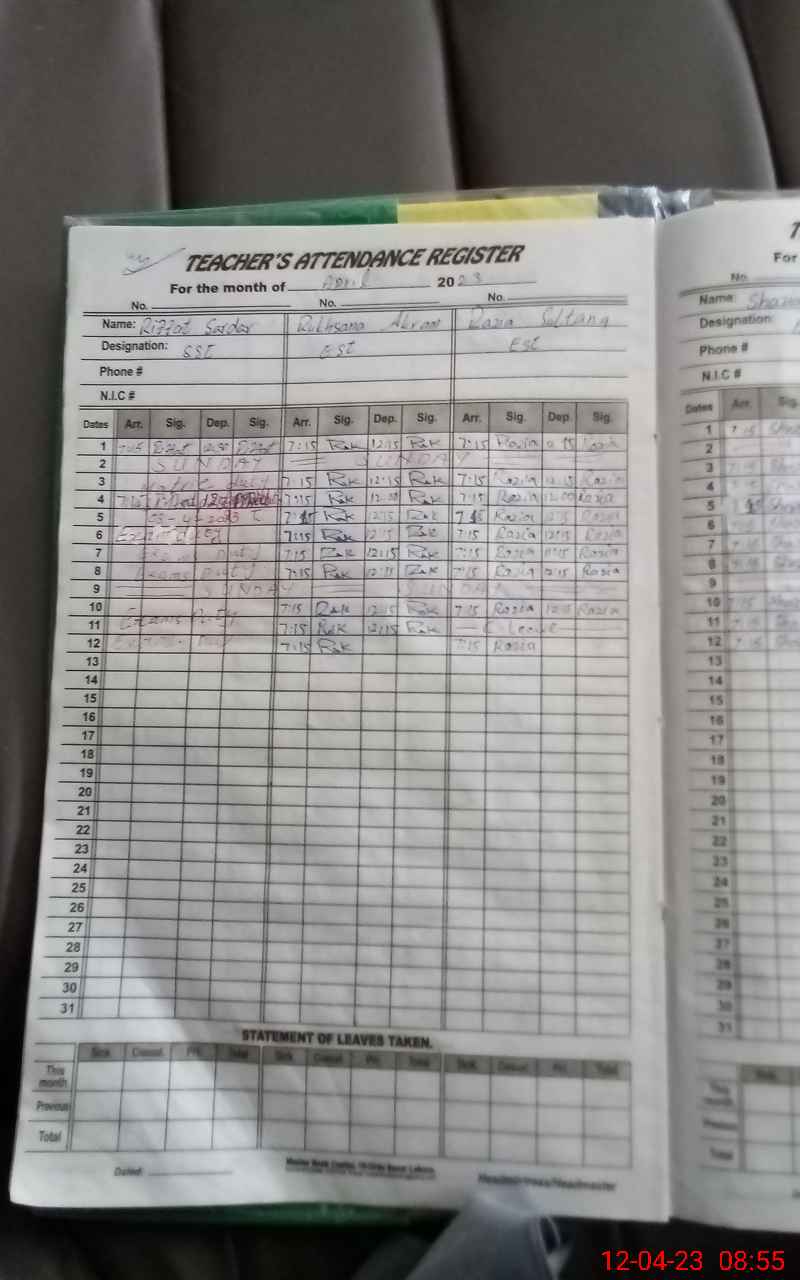 TEACHER'S ATTENDANCE REGISTER
For the month of April 2023
No. No. No.
Name: Riffat Sardar Rukhsana Akram Razia Sultana
Designation: SST EST EST
Phone #
N.I.C #
Dates Arr. Sig. Dep. Sig. Arr. Sig. Dep. Sig. Arr. Sig. Dep. Sig.
1 7:15 Riffat 12:30 Riffat 7:15 Rak 12:15 Rak 7:15 Razia 12:15 Razia
2 SUNDAY SUNDAY
3 Matric duty 7:15 Rak 12:15 Rak 7:15 Razia 12:15 Razia
4 7:15 Rak 12:00 Rak 7:15 Razia 12:00 Razia
5 7:15 Rak 12:15 Rak 7:15 Razia 12:15 Razia
6 Exam duty 7:15 Rak 12:15 Rak 7:15 Razia 12:15 Razia
7 Exams Duty 7:15 Rak 12:15 Rak 7:15 Razia 12:15 Razia
8 Exams Duty 7:15 Rak 12:15 Rak 7:15 Razia 12:15 Razia
9 SUNDAY SUNDAY
10 7:15 Rak 12:15 Rak 7:15 Razia 12:15 Razia
11 Exams Duty 7:15 Rak 12:15 Rak C Leave
12 Exams Duty 7:15 Rak 7:15 Razia
13
14
15
16
17
18
19
20
21
22
23
24
25
26
27
28
29
30
31
STATEMENT OF LEAVES TAKEN.
Sick. Casual. Pri. Total Sick. Casual. Pri. Total Sick. Casual. Pri. Total
This month
Previous
Total
Dated:
Headmistress/Headmaster
For
No.
Name:
Designation:
Phone #
N.I.C #
Dates Arr. Sig.
1 7:15
2
3 7:15
4
5
6
7
8
9
10 7:15
11
12 7:15
13
14
15
16
17
18
19
20
21
22
23
24
25
26
27
28
29
30
31
This month
Previous
Total
12-04-23 08:55